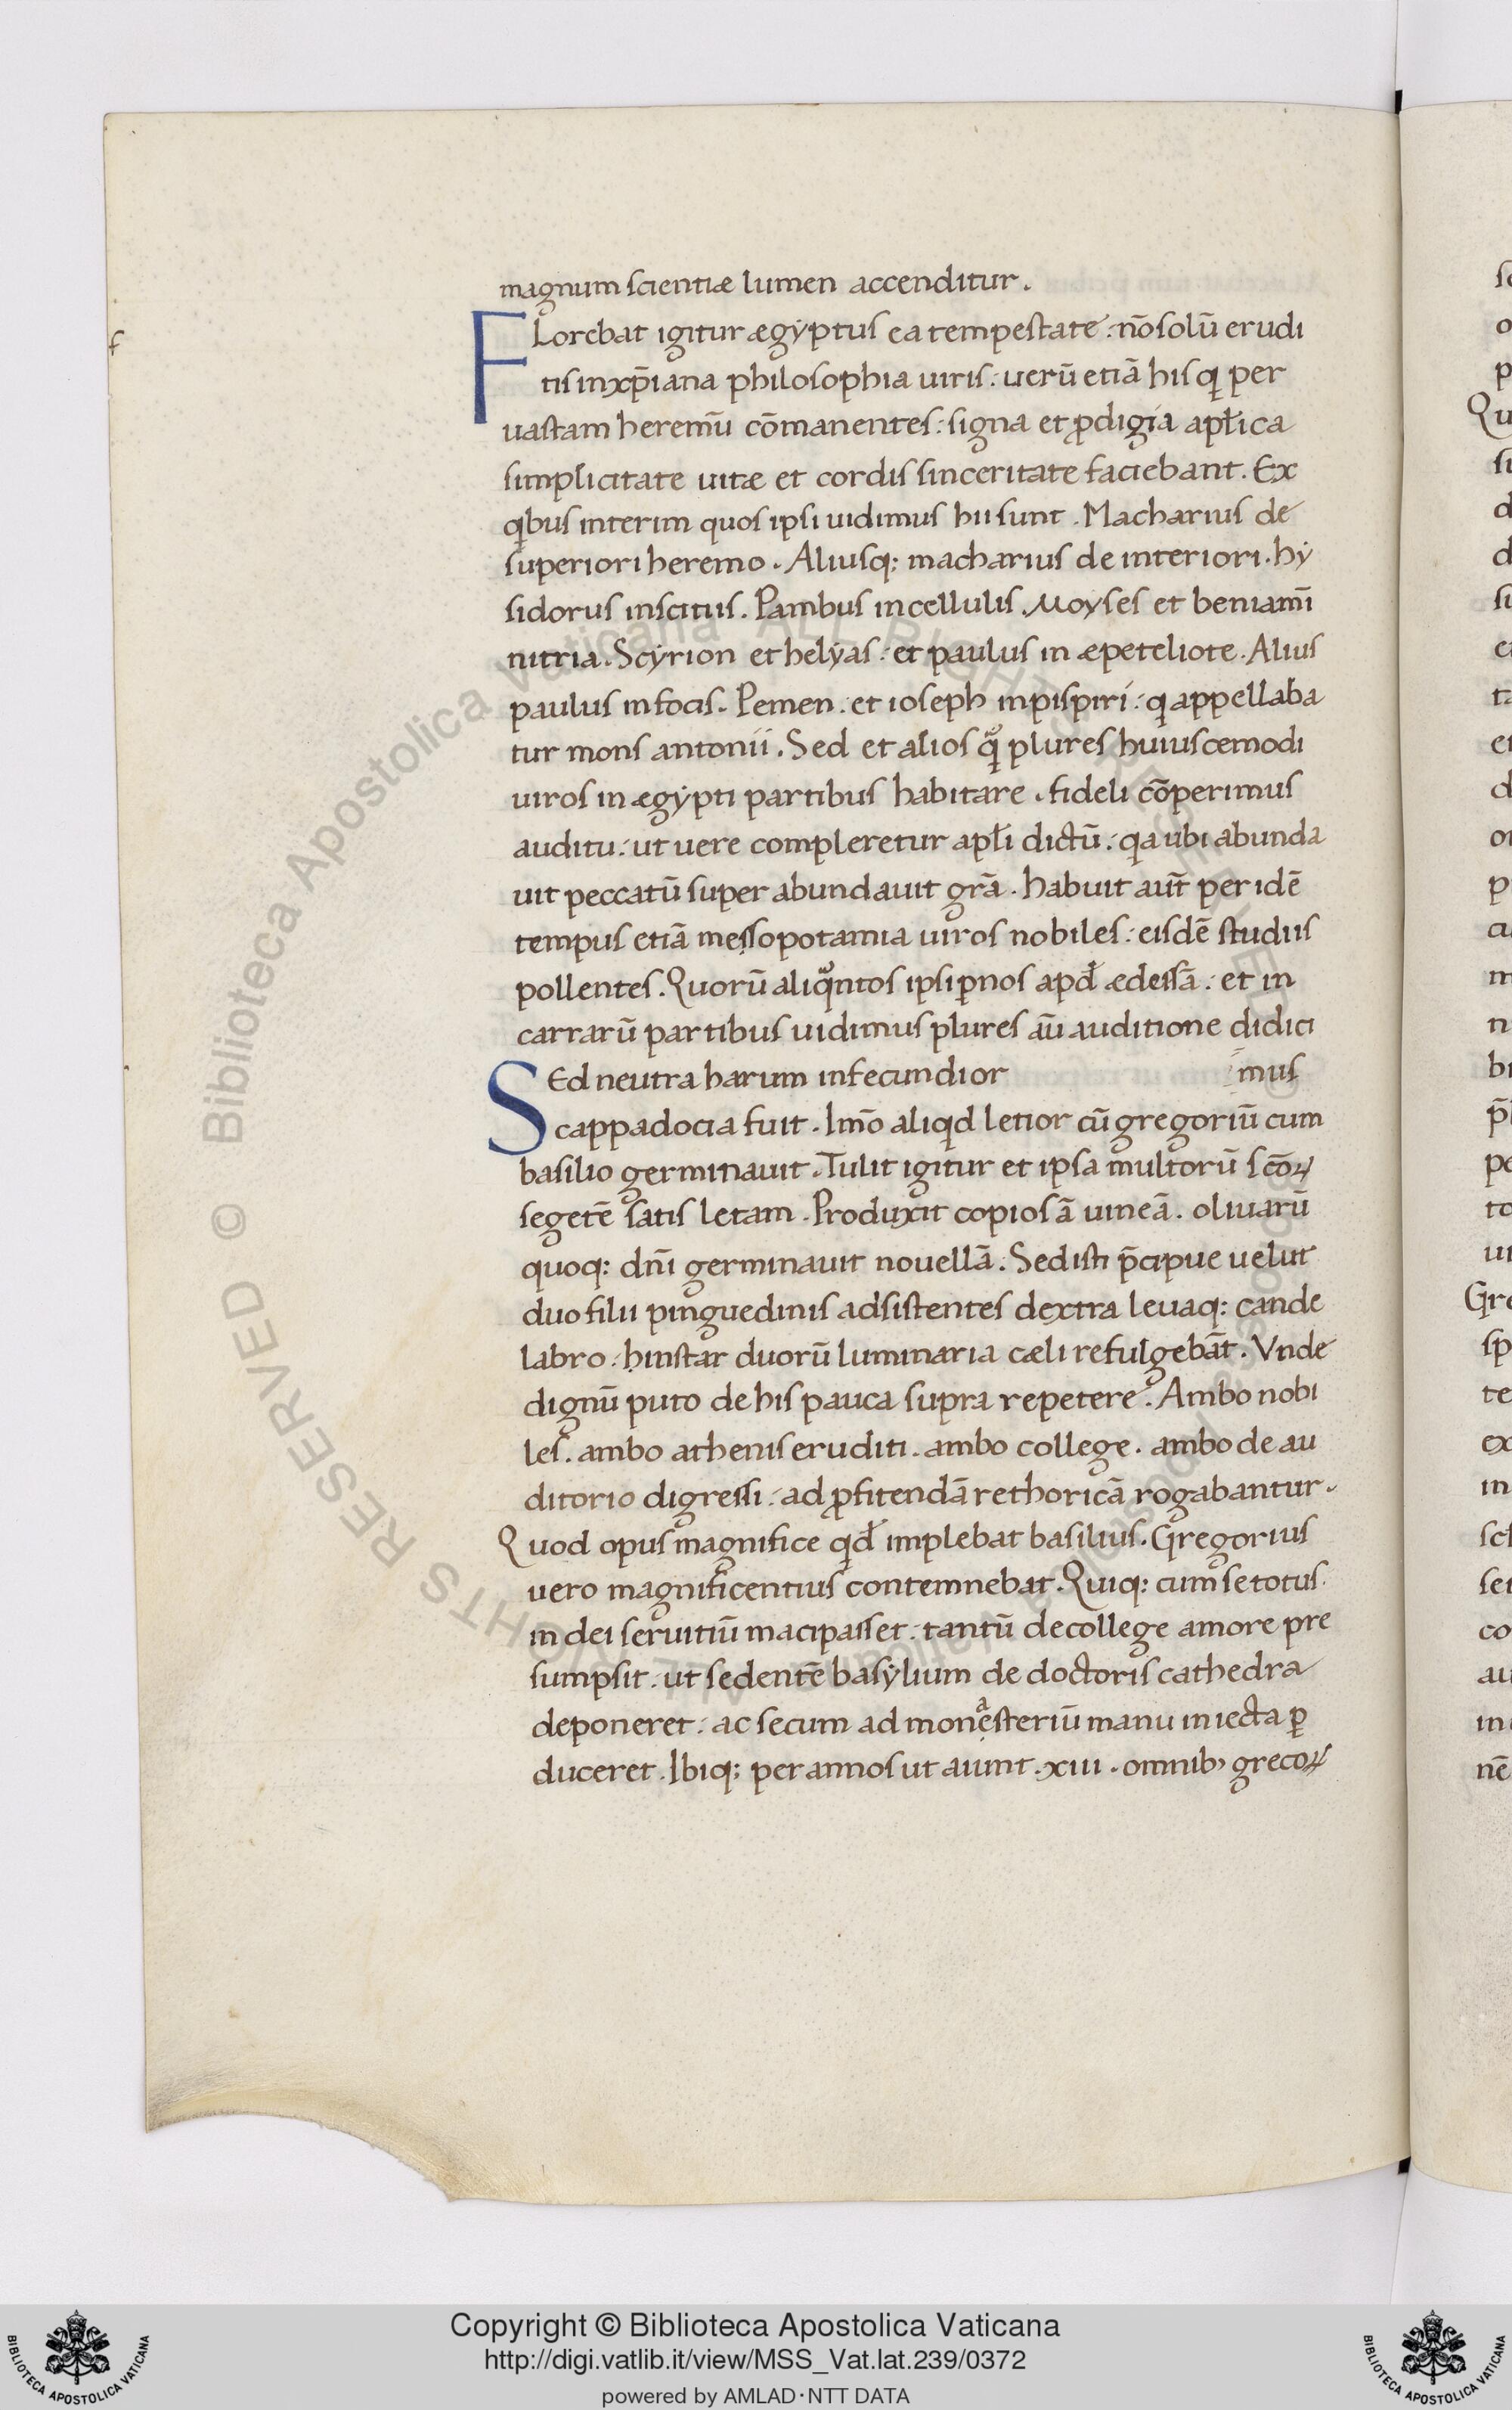 magnum scientiæ lumen accenditur.
FLorebat igitur ægyptus ea tempestate: nō solū erudi
tis in xp̄iana philosophia uiris: uerū etiā his qi per
uastam heremū cōmanentes: signa et ꝓdigia apłica
simplicitate uitæ et cordis sinceritate faciebant. Ex
qibus interim quos ipsi uidimus hii sunt. Macharius de
superiori heremo. Aliusq; macharius de interiori. hy
sidorus inscitus. Pambus in cellulis. Moyses et beniami̅
nitria. Scyrion et helyas: et paulus in æpeteliote. Alius
paulus in focis. Pemen: et ioseph in pispiri: qi appellaba
tur mons antonii. Sed et alios qͣ plures huiuscemodi
uiros in ægypti partibus habitare. fideli cōperimus
auditu: ut uere compleretur apłi dictū: qia ubi abunda
uit peccatū super abundauit gr̄a. habuit aut̄ per idē
tempus etiā messopotamia uiros nobiles: eisdē studiis
pollentes. Quorū aliqͣntos ipsi ꝑ nos apđ ædessā: et in
carrarū partibus uidimus plures aū auditione didici
SEd neutra harum infecundior mus
cappadocia fuit. Imō aliqid letior cū gregoriū cum
basilio germinauit. Tulit igitur et ipsa multorū scōꝝ
segetē satis letam. Produxit copiosā uineā. oliuarū
quoq; dn̄i germinauit nouellā. Sed isti p̄cipue uelut
duo filii pinguedinis adsistentes dextra leuaq; cande
labro: hinstar duorū luminaria cæli refulgebāt. Vnde
dignū puto de his pauca supra repetere. Ambo nobi
les. ambo athenis eruditi. ambo college. ambo de au
ditorio digressi: ad ꝓfitendā rethoricā rogabantur.
Quod opus magnifice qidđ implebat basilius. Gregorius
uero magnificentius contemnebat. Quiq; cum se totus
in dei seruitiū macipasset: tantū de college amore pre
sumpsit: ut sedentē basylium de doctoris cathedra
deponeret: ac secum ad monẹᵃsteriū manu iniecta ꝑ
duceret. Ibiq; per annos ut aiunt. xiii. omnibꝫ grecoꝝ
Copyright © Biblioteca Apostolica Vaticana
http://digi.vatlib.it/view/MSS_Vat.lat.239/0372
powered by AMLAD·NTT DATA
BIBLIOTECA APOSTOLICA VATICANA
BIBLIOTECA APOSTOLICA VATICANA